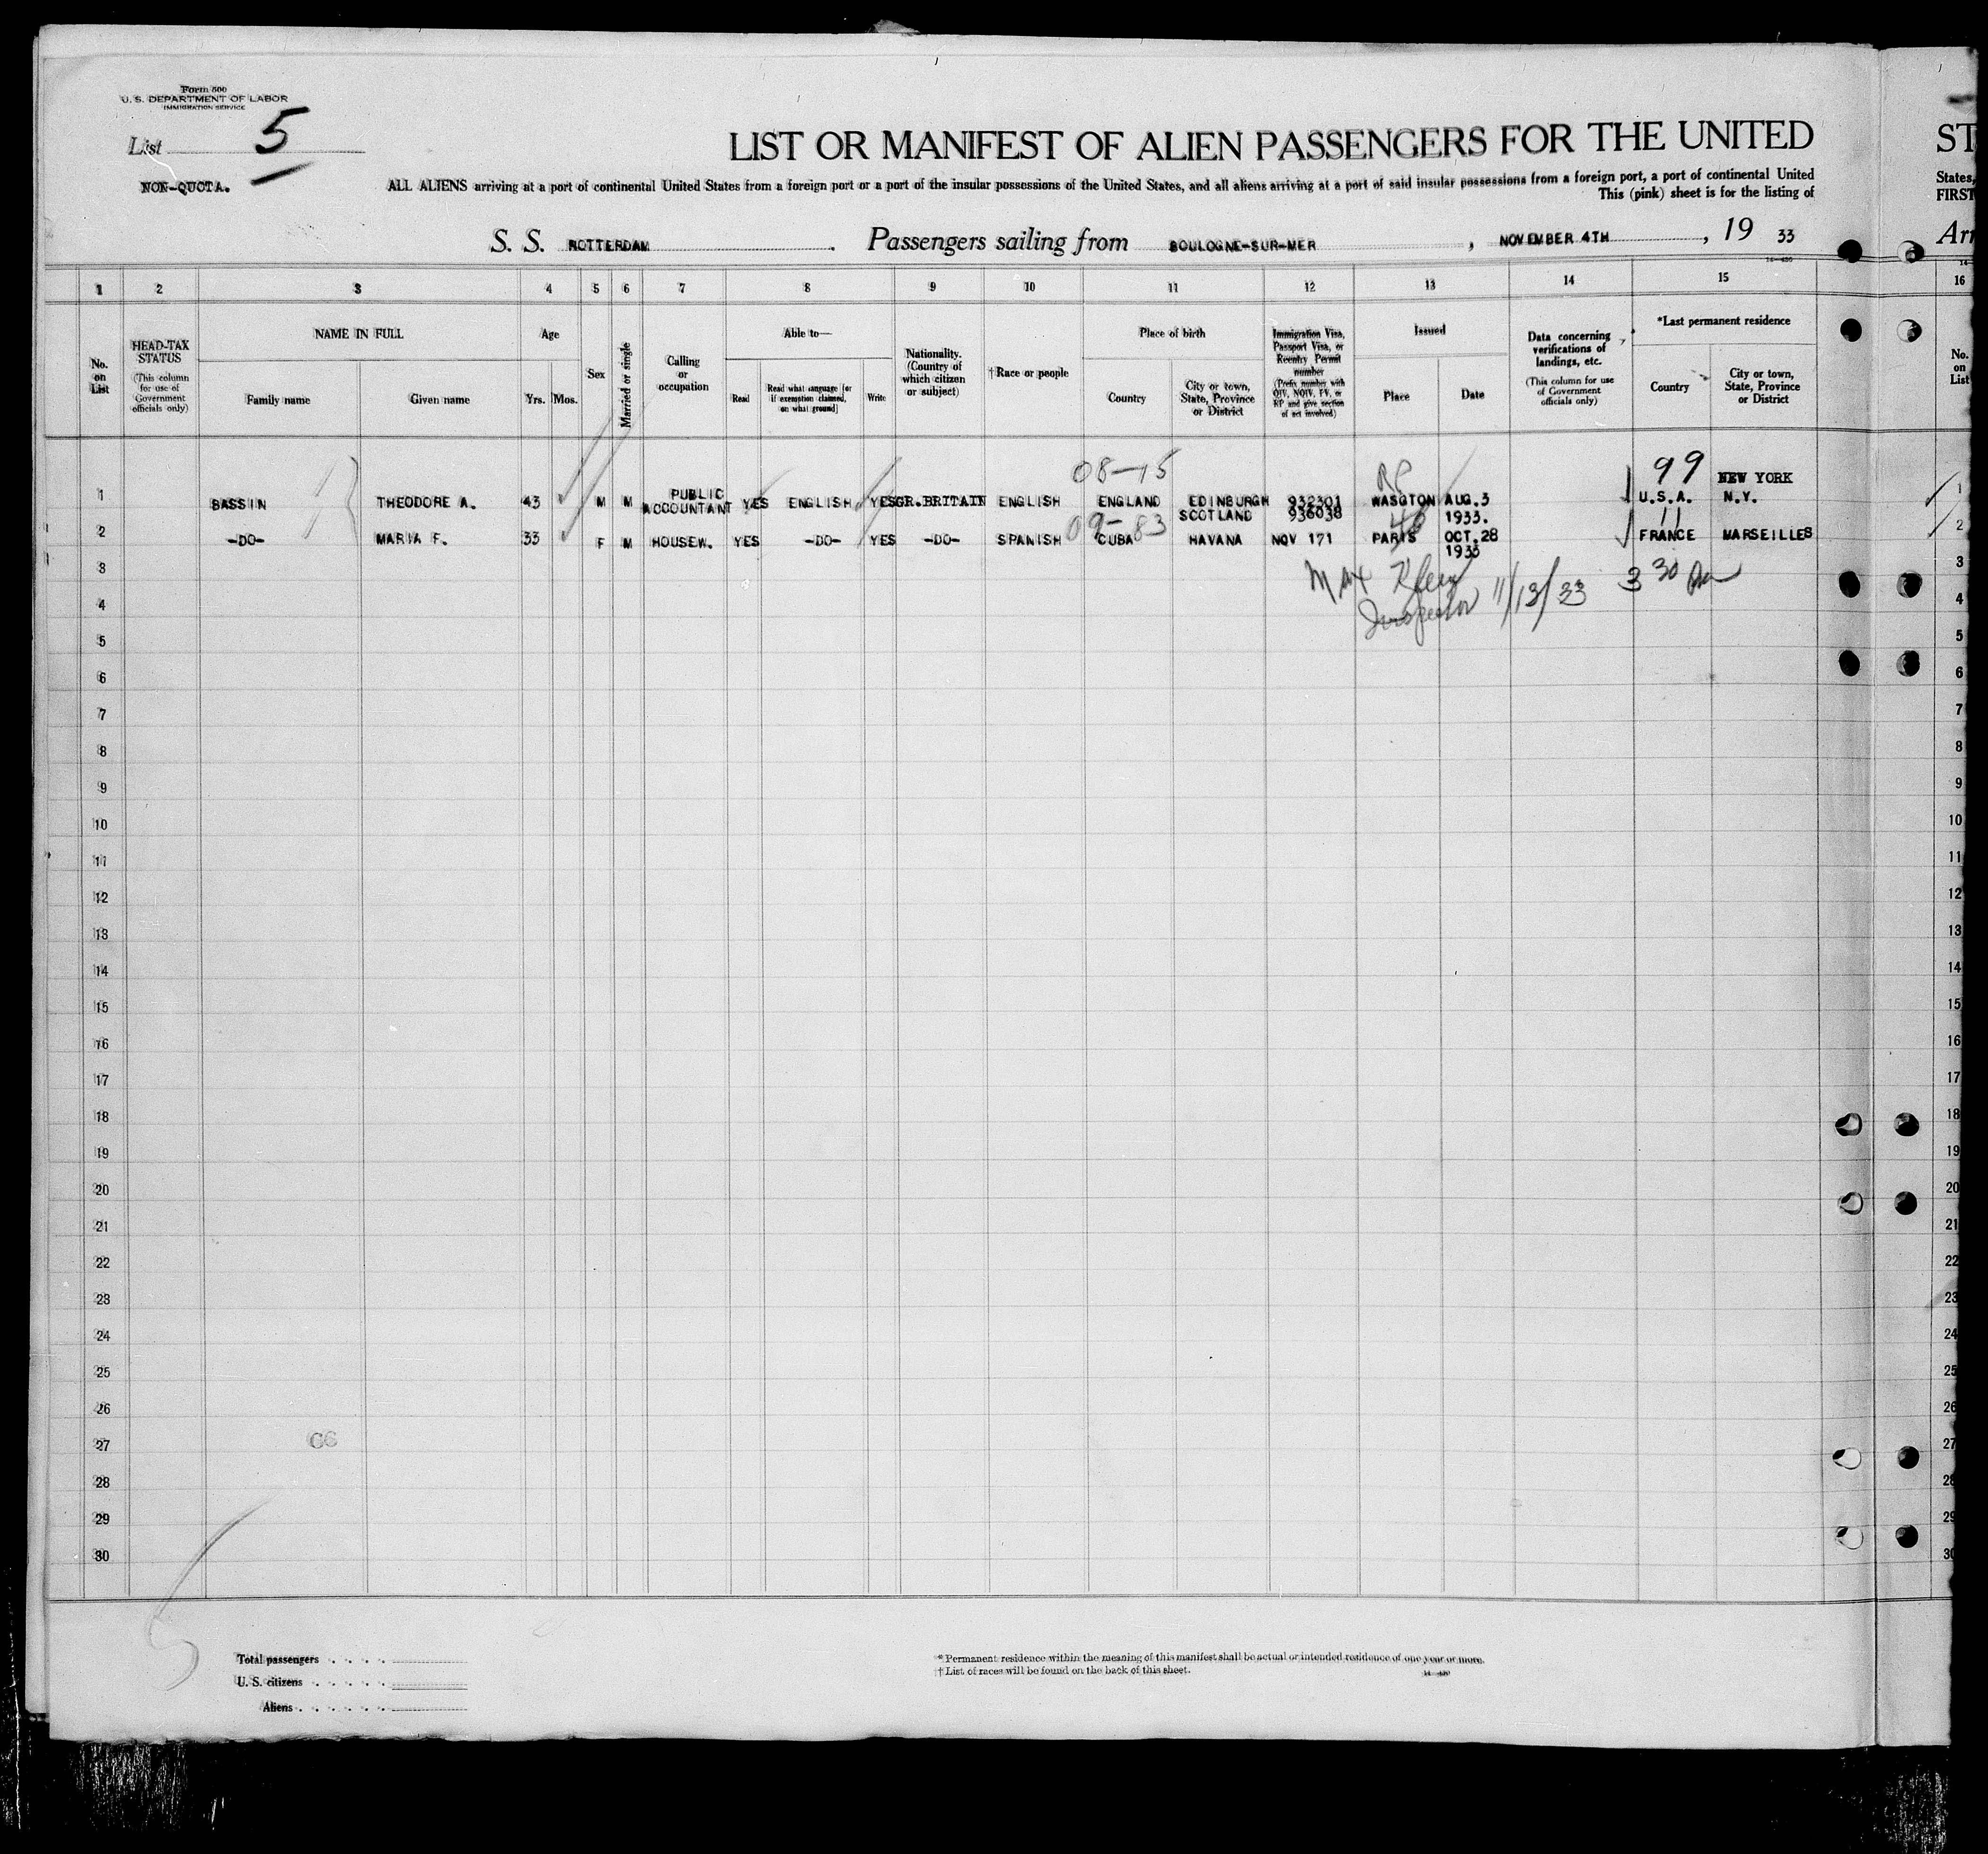 Form 500
U. S. DEPARTMENT OF LABOR
IMMIGRATION SERVICE
List 5
NON-QUOTA.
LIST OR MANIFEST OF ALIEN PASSENGERS FOR THE UNITED
ST
ALL ALIENS arriving at a port of continental United States from a foreign port or a port of the insular possessions of the United States, and all aliens arriving at a port of said insular possessions from a foreign port, a port of continental United
States,
This (pink) sheet is for the listing of
FIRST
S. S. ROTTERDAM. Passengers sailing from BOULOGNE-SUR-MER, NOVEMBER 4TH, 19 33
Arr
1 2 3 4 5 6 7 8 9 10 11 12 13 14 15 16
No. on List
HEAD-TAX STATUS
(This column for use of Government officials only)
NAME IN FULL
Family name
Given name
Age
Yrs.
Mos.
Sex
Married or single
Calling or occupation
Able to—
Read
Read what language [or if exemption claimed, on what ground]
Write
Nationality. (Country of which citizen or subject)
†Race or people
Place of birth
Country
City or town, State, Province or District
Immigration Visa, Passport Visa, or Reentry Permit number
(Prefix number with QIV, NQIV, PV, or RP and give section of act involved)
Issued
Place
Date
Data concerning verifications of landings, etc.
(This column for use of Government officials only)
*Last permanent residence
Country
City or town, State, Province or District
No. on List
08-15 RP 99 NEW YORK
1 BASSIN THEODORE A. 43 M M PUBLIC ACCOUNTANT YES ENGLISH YES GR.BRITAIN ENGLISH ENGLAND EDINBURGH SCOTLAND 932301 936038 WASGTON AUG.3 1933. U.S.A. N.Y. 1
09-83 11
2 -DO- MARIA F. 33 F M HOUSEW. YES -DO- YES -DO- SPANISH CUBA HAVANA NOV 171 PARIS OCT.28 1933 FRANCE MARSEILLES 2
Max
Inspector 11/13/33 3 30
3 3
4 4
5 5
6 6
7 7
8 8
9 9
10 10
11 11
12 12
13 13
14 14
15 15
16 16
17 17
18 18
19 19
20 20
21 21
22 22
23 23
24 24
25 25
26 26
27 27
28 28
29 29
30 30
Total passengers
U. S. citizens
Aliens
* Permanent residence within the meaning of this manifest shall be actual or intended residence of one year or more.
† List of races will be found on the back of this sheet.